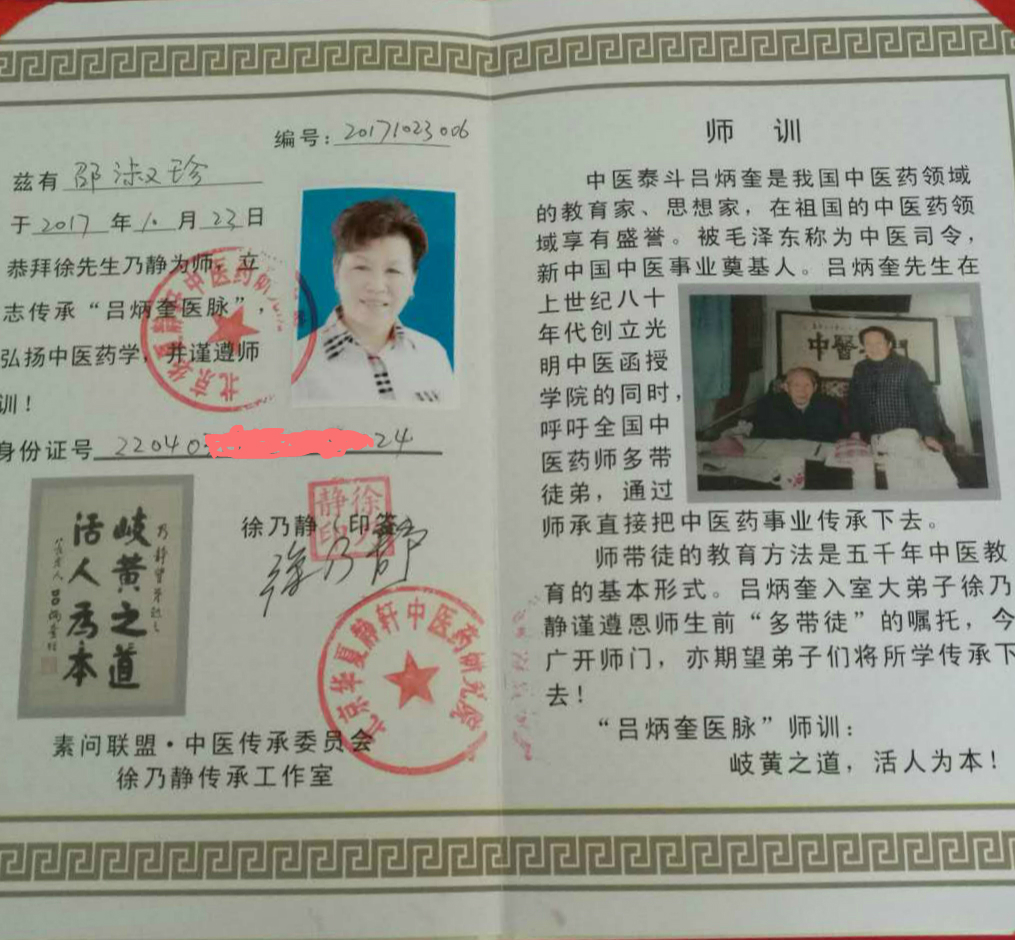 编号：20171023006
兹有 邵淑珍
于2017年10月23日
恭拜徐先生乃静为师，立
志传承“吕炳奎医脉”，
弘扬中医药学，并谨遵师
训！
身份证号 22040 24
徐乃静 印签
徐乃静
徐乃静印
北京华夏静轩中医药研究院
北京华夏静轩中医药研究院
岐黄之道
活人为本
素问联盟·中医传承委员会
徐乃静传承工作室
师 训
中医泰斗吕炳奎是我国中医药领域
的教育家、思想家，在祖国的中医药领
域享有盛誉。被毛泽东称为中医司令，
新中国中医事业奠基人。吕炳奎先生在
上世纪八十
年代创立光
明中医函授
学院的同时，
呼吁全国中
医药师多带
徒弟，通过
师承直接把中医药事业传承下去。
中醫
师带徒的教育方法是五千年中医教
育的基本形式。吕炳奎入室大弟子徐乃
静谨遵恩师生前“多带徒”的嘱托，今
广开师门，亦期望弟子们将所学传承下
去！
“吕炳奎医脉”师训：
岐黄之道，活人为本！